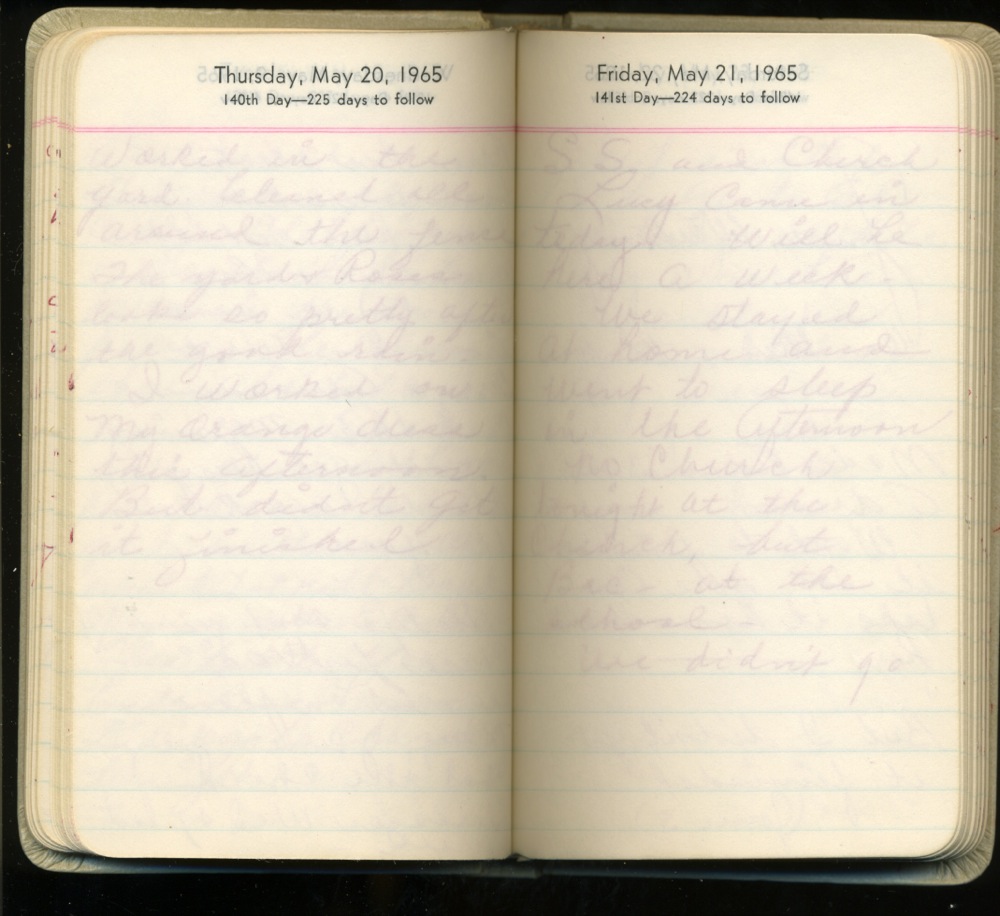 Thursday, May 20, 1965
140th Day—225 days to follow
Worked in the
yard cleaned all
around the fence
The yard & Roses
looks so pretty after
the good rain.
I worked on
My orange dress
this afternoon.
But didn't get
it finished
Friday, May 21, 1965
141st Day—224 days to follow
S.S. and Church
Lucy Came in
today. Will be
here a week.
We stayed
at home and
went to sleep
in the afternoon
No Church
tonight at the
church, but
Bac - at the
school
We didn't go